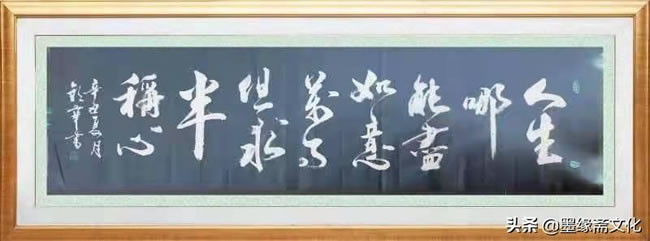 人生
哪
能盡
如意
萬事
但求
半
稱心
辛丑夏月
書
头条 @墨缘斋文化